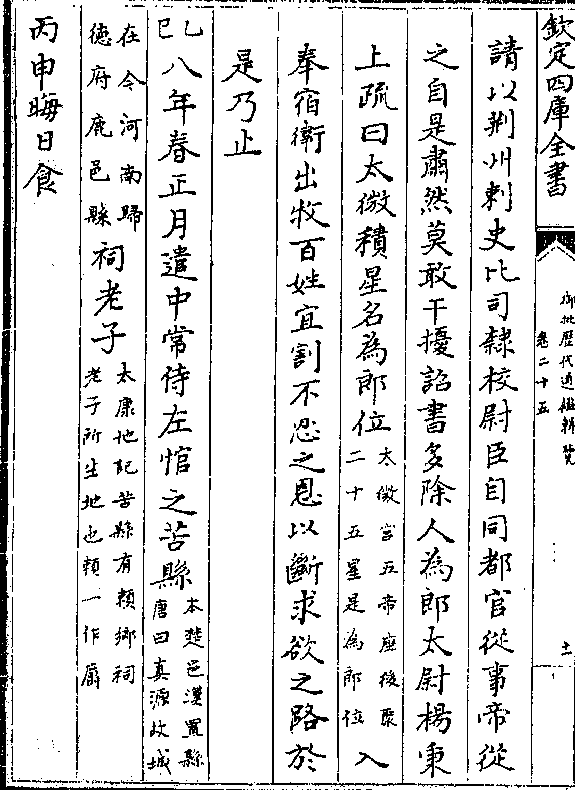 欽定四庫全書
御批歷代通鑑輯覽
卷二十五
十一
請以荆州刺史比司隸校尉臣自同都官從事帝從
之自是肅然莫敢干擾詔書多除人為郎太尉楊秉
上疏曰太微積星名為郎位太微宫五帝座後聚二十五星是為郎位入
奉宿衛出牧百姓宜割不忍之恩以斷求欲之路於
是乃止
乙巳八年春正月遣中常侍左悺之苦縣本楚邑漢置縣唐曰真源故城
在今河南歸德府鹿邑縣祠老子太康地記苦縣有賴鄉祠老子所生地也賴一作厲
丙申晦日食